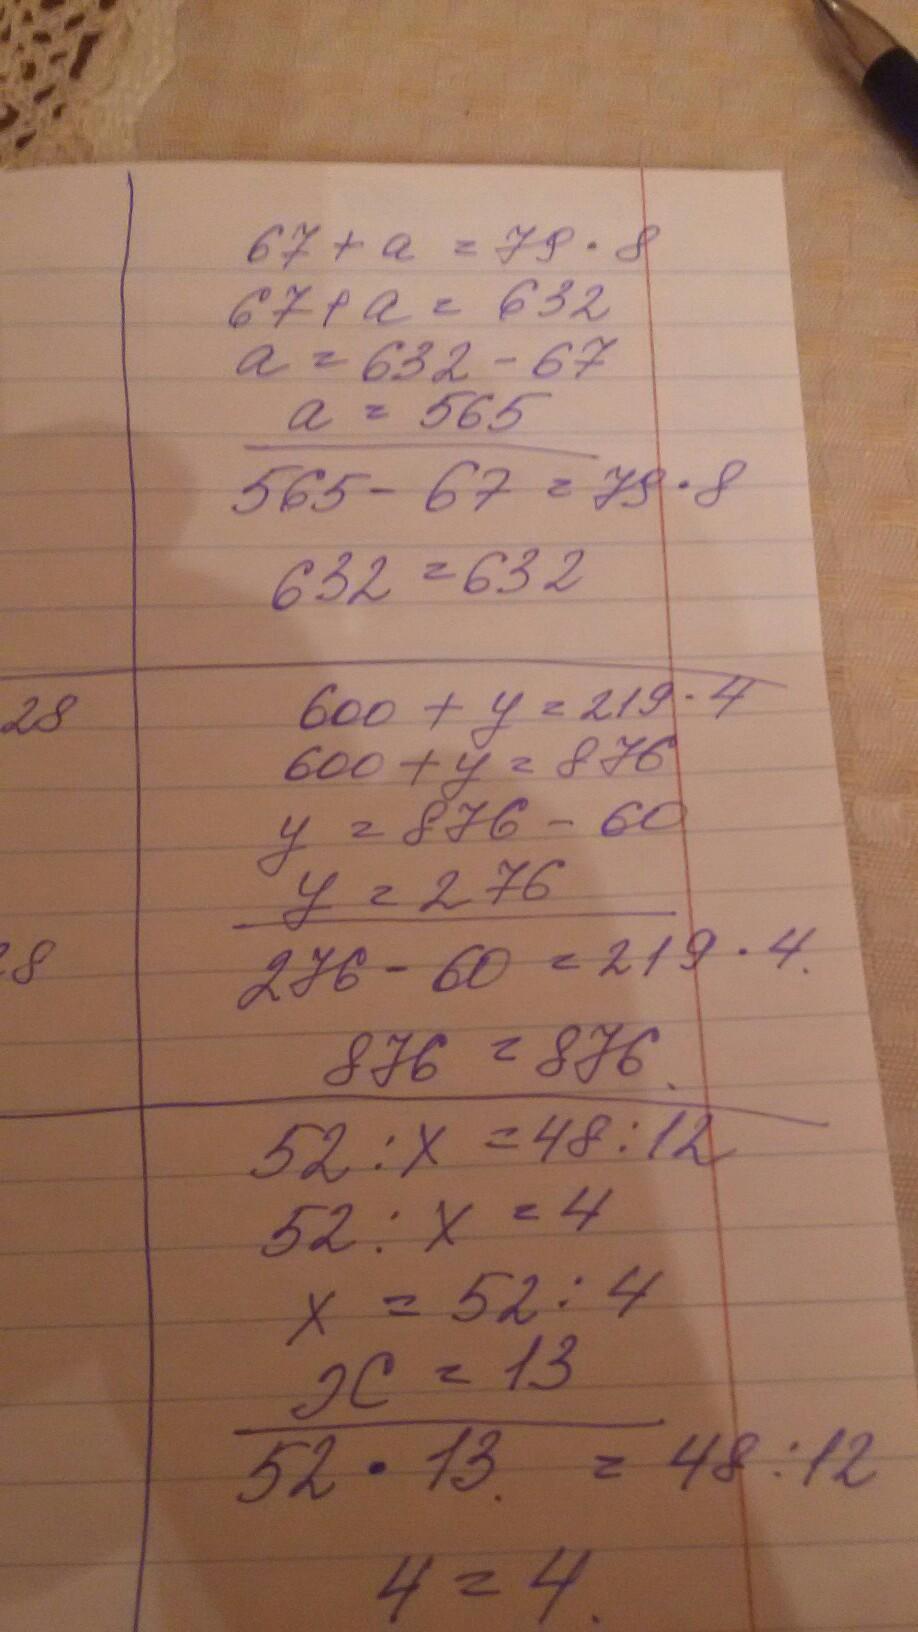 67 + a = 79 · 8
67 + a = 632
a = 632 - 67
a = 565
565 - 67 = 79 · 8
632 = 632
28
600 + y = 219 · 4
600 + y = 876
y = 876 - 60
y = 276
28
276 - 60 = 219 · 4.
876 = 876.
52 : x = 48 : 12
52 : x = 4
x = 52 : 4
x = 13
52 · 13. = 48 : 12
4 = 4.